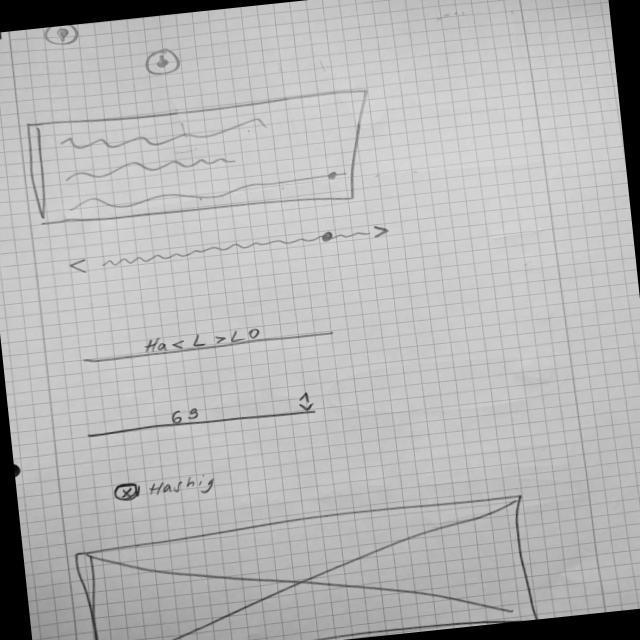 Ha<L>LO
69
Hashig